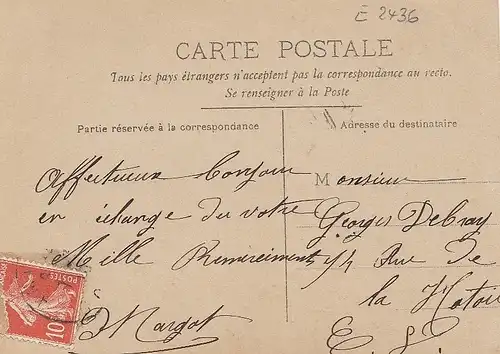 E 2436
CARTE POSTALE
Tous les pays étrangers n'acceptent pas la correspondance au recto.
Se renseigner à la Poste
Partie réservée à la correspondance
Affectueux bonjour
en échange du votre
Mille Remerciements
Margot
Adresse du destinataire
Monsieur
Georges Debray
54 Rue de
la
POSTES
10